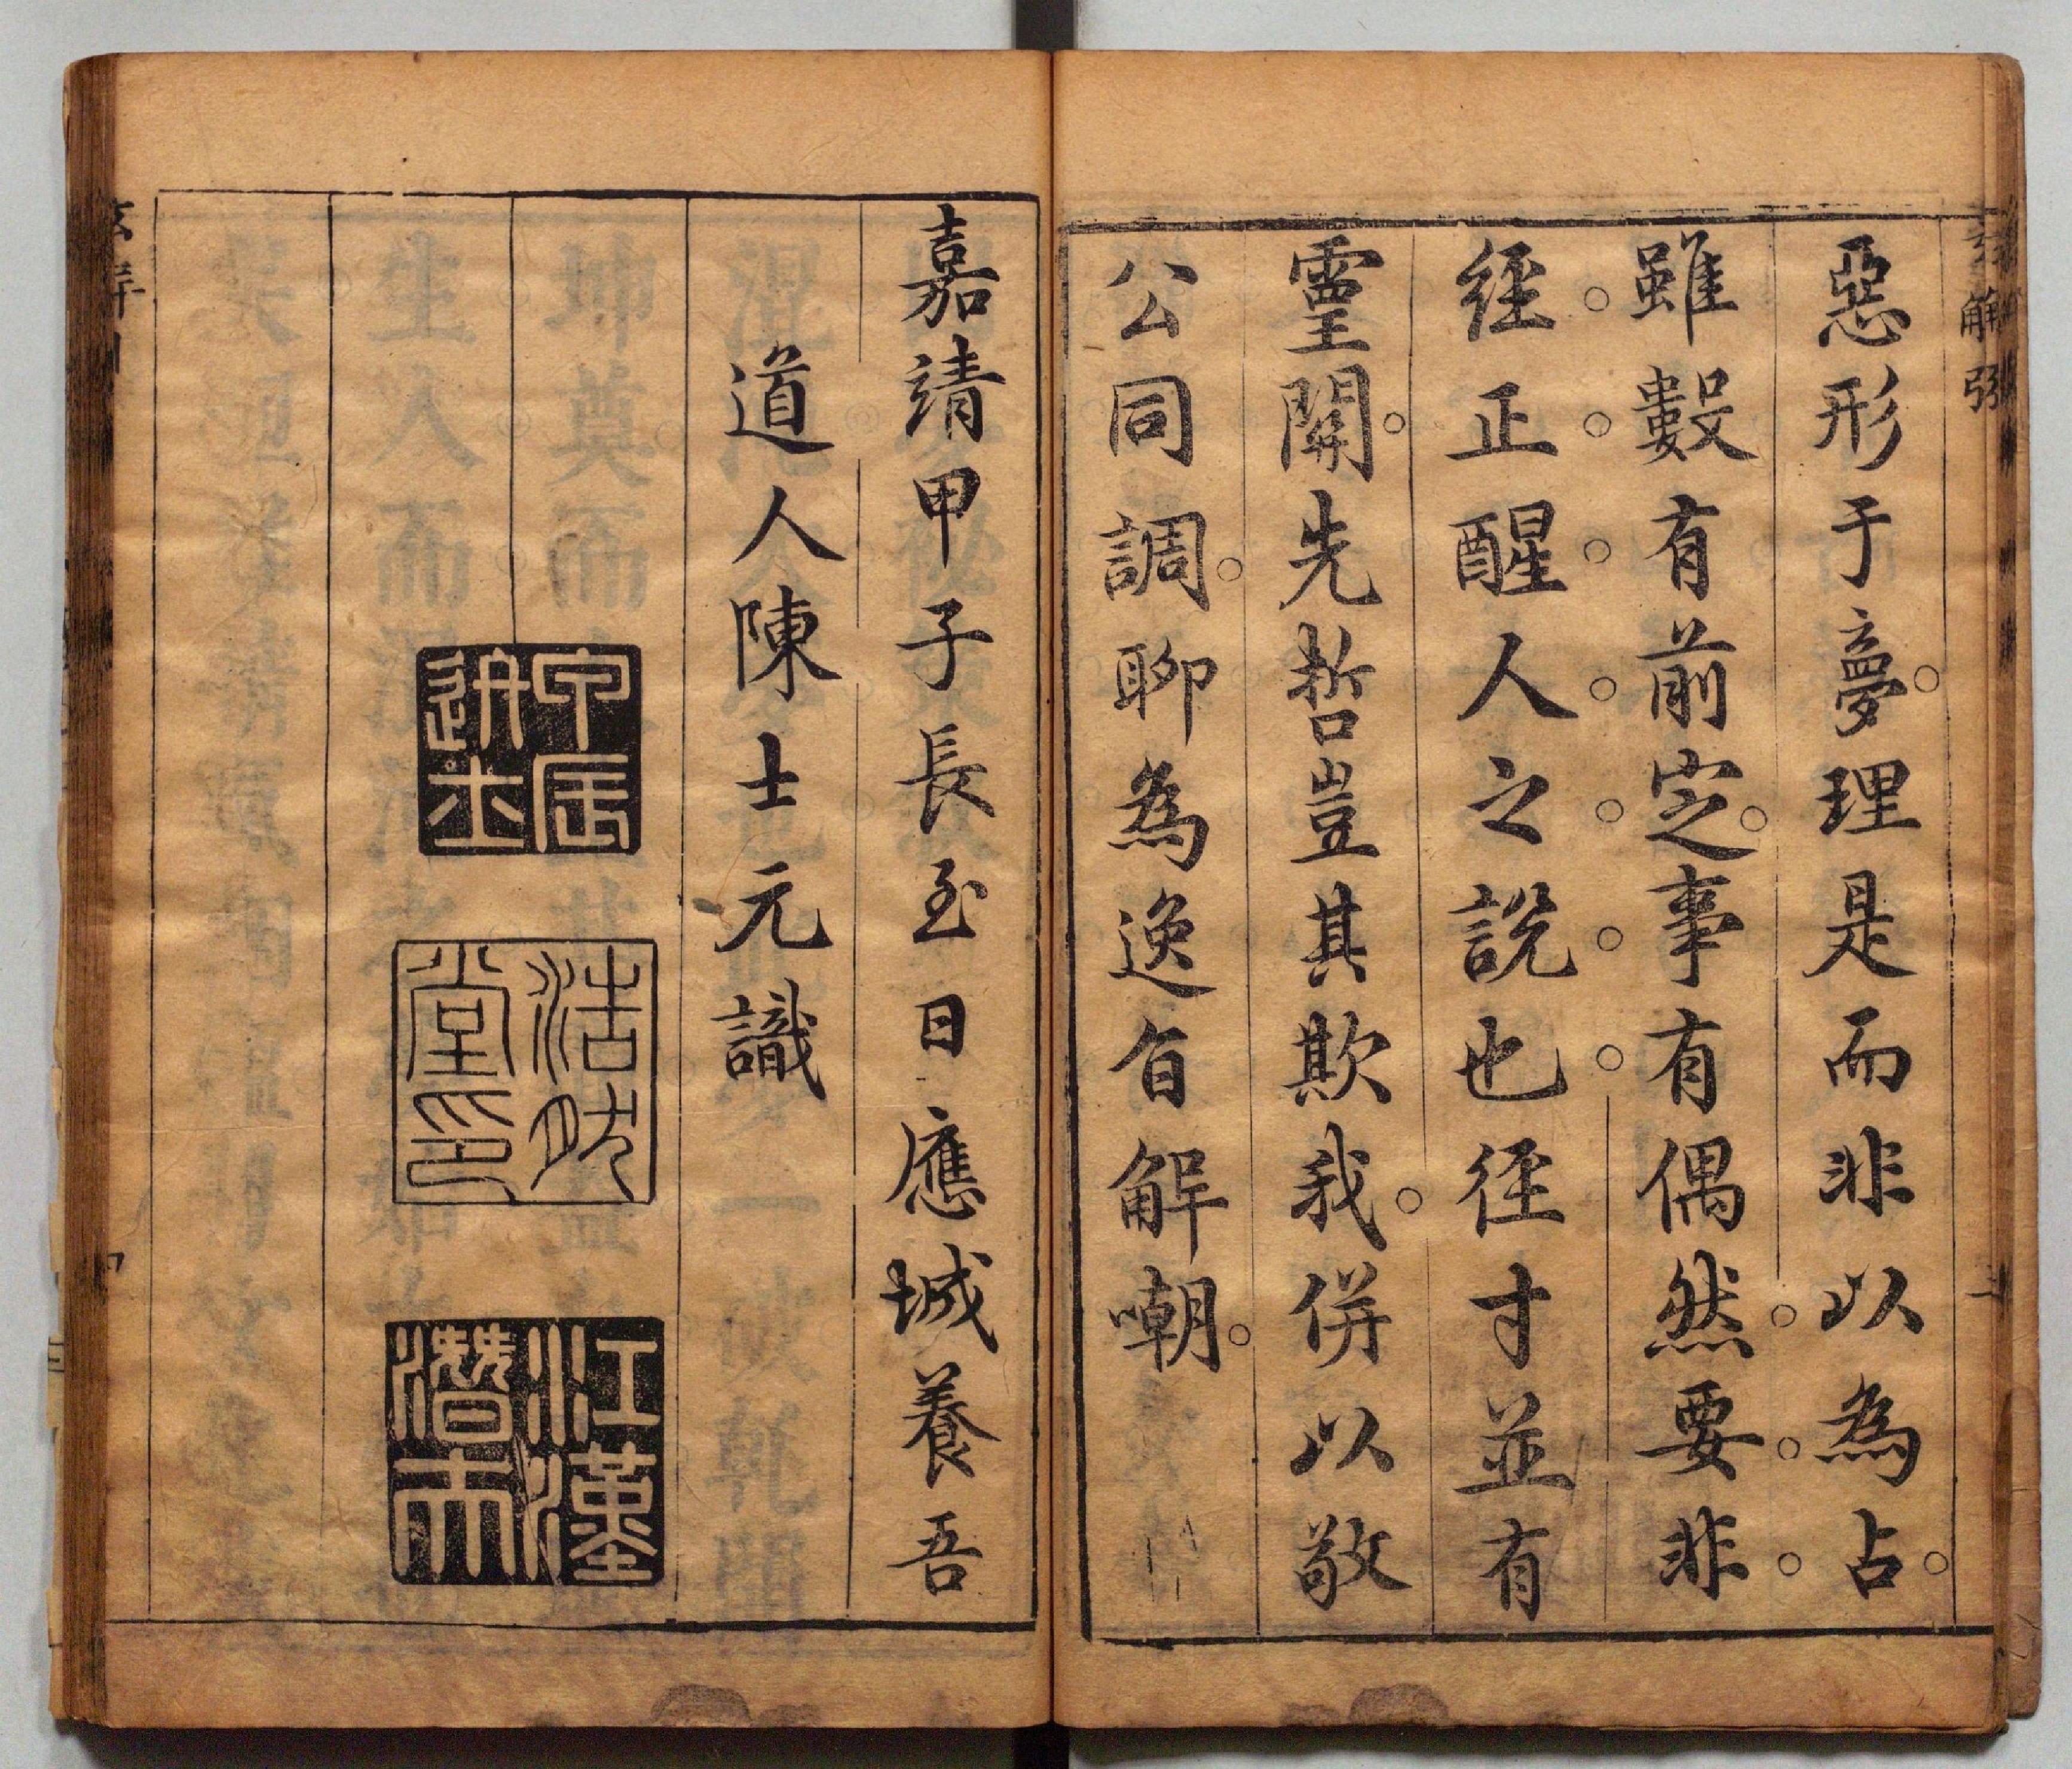 惡形于夢理是而非以為占
雖數有前定事有偶然要非
經正醒人之說也徑寸並有
靈開先哲豈其欺我併以敬
公同調聊為逸旨解嘲
嘉靖甲子長至日應城養吾
道人陳士元識
江漢潛夫